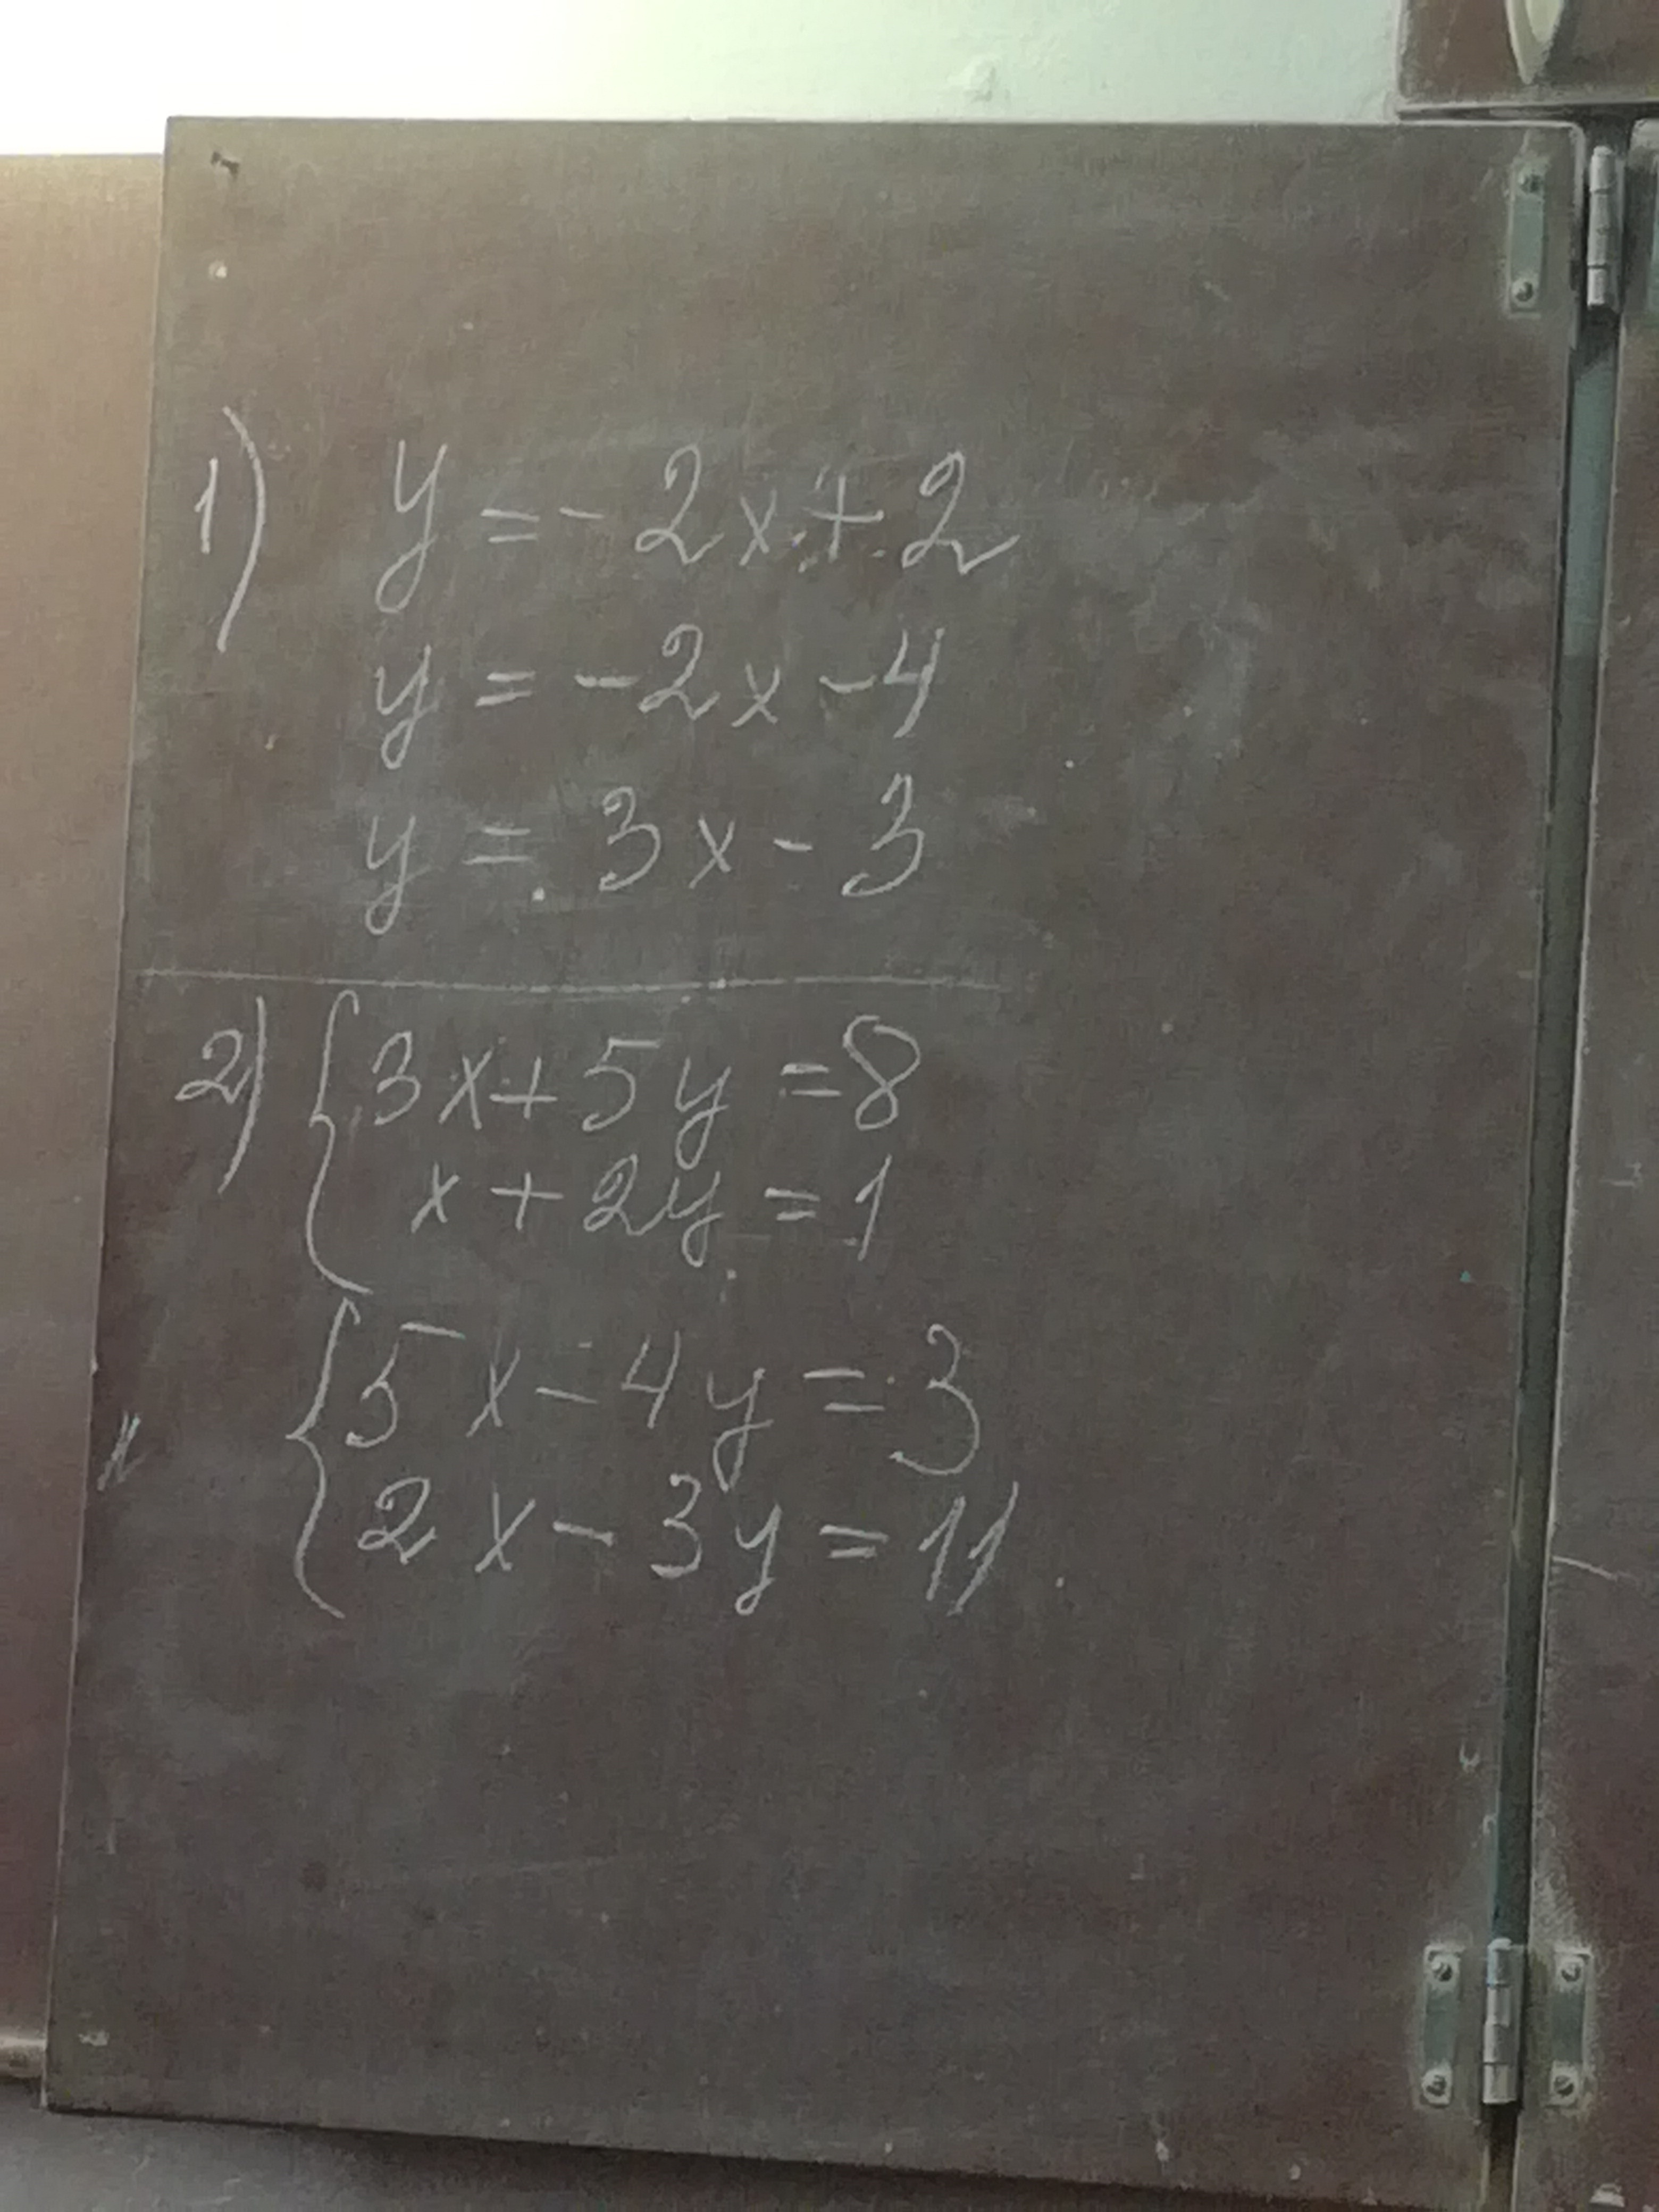 1) y = -2x + 2
y = -2x - 4
y = 3x - 3
2) { 3x + 5y = 8
x + 2y = 1
{ 5x - 4y = 3
2x - 3y = 11.